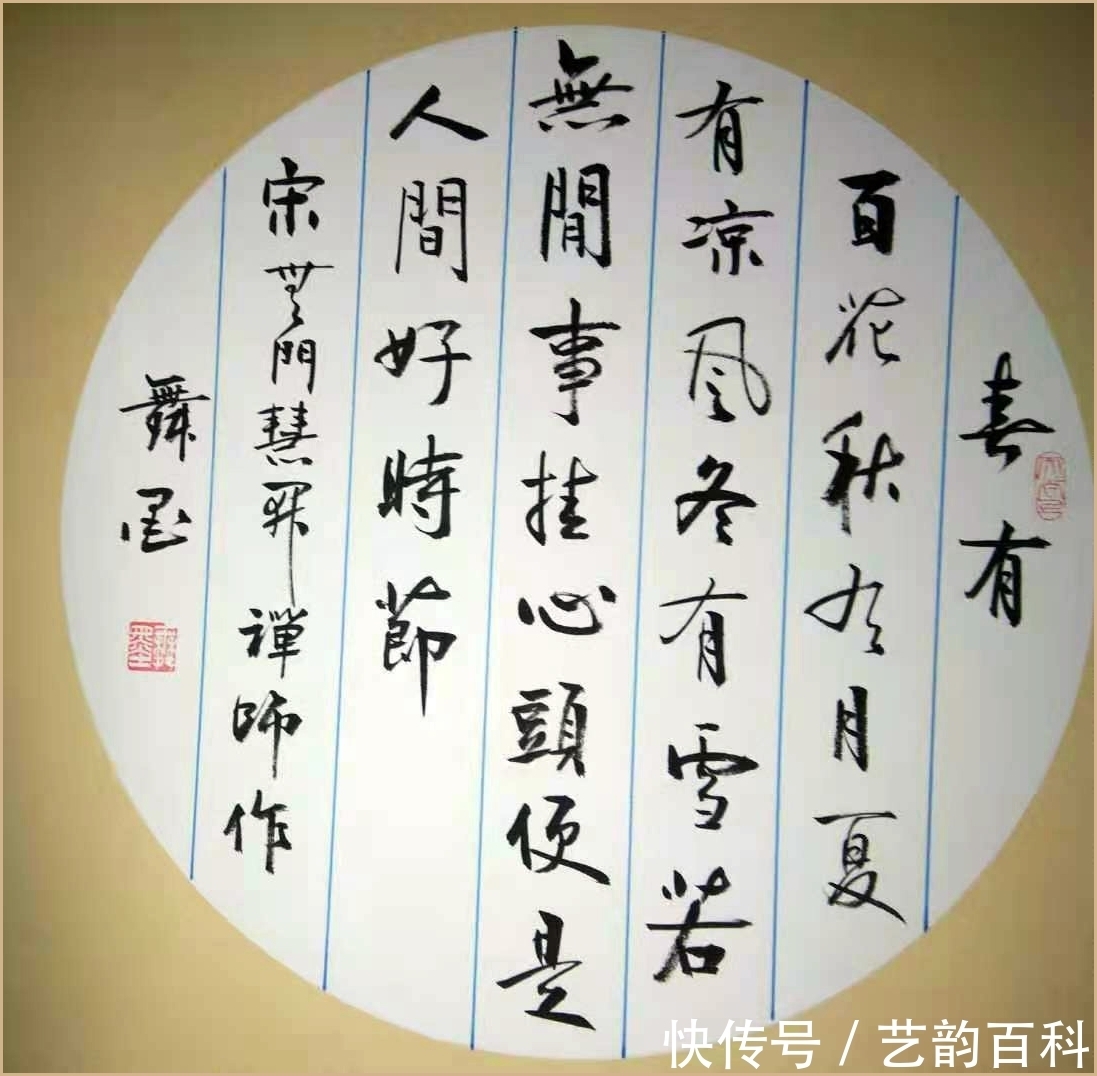 春有
百花秋有月夏
有凉风冬有雪若
無閒事挂心頭便是
人間好時節
宋無門慧開禪師作
舞墨
舞墨
快传号 / 艺韵百科